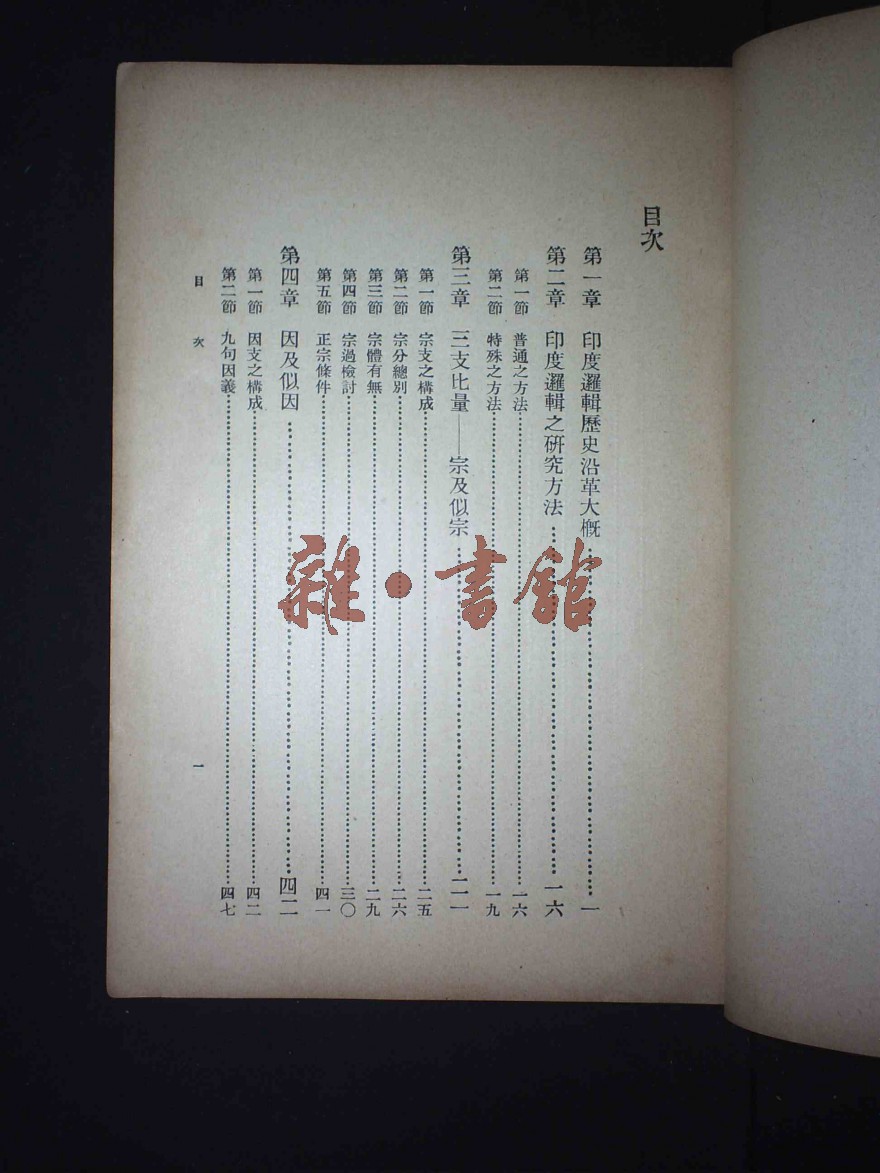 目次
第一章　印度邏輯歷史沿革大概……一
第二章　印度邏輯之研究方法……一六
第一節　普通之方法……一六
第二節　特殊之方法……一九
第三章　三支比量——宗及似宗……二一
第一節　宗支之構成……二五
第二節　宗分總別……二六
第三節　宗體有無……二九
第四節　宗過檢討……三〇
第五節　正宗條件……四一
第四章　因及似因……四二
第一節　因支之構成……四二
第二節　九句因義……四七
目次　一
雜·書館